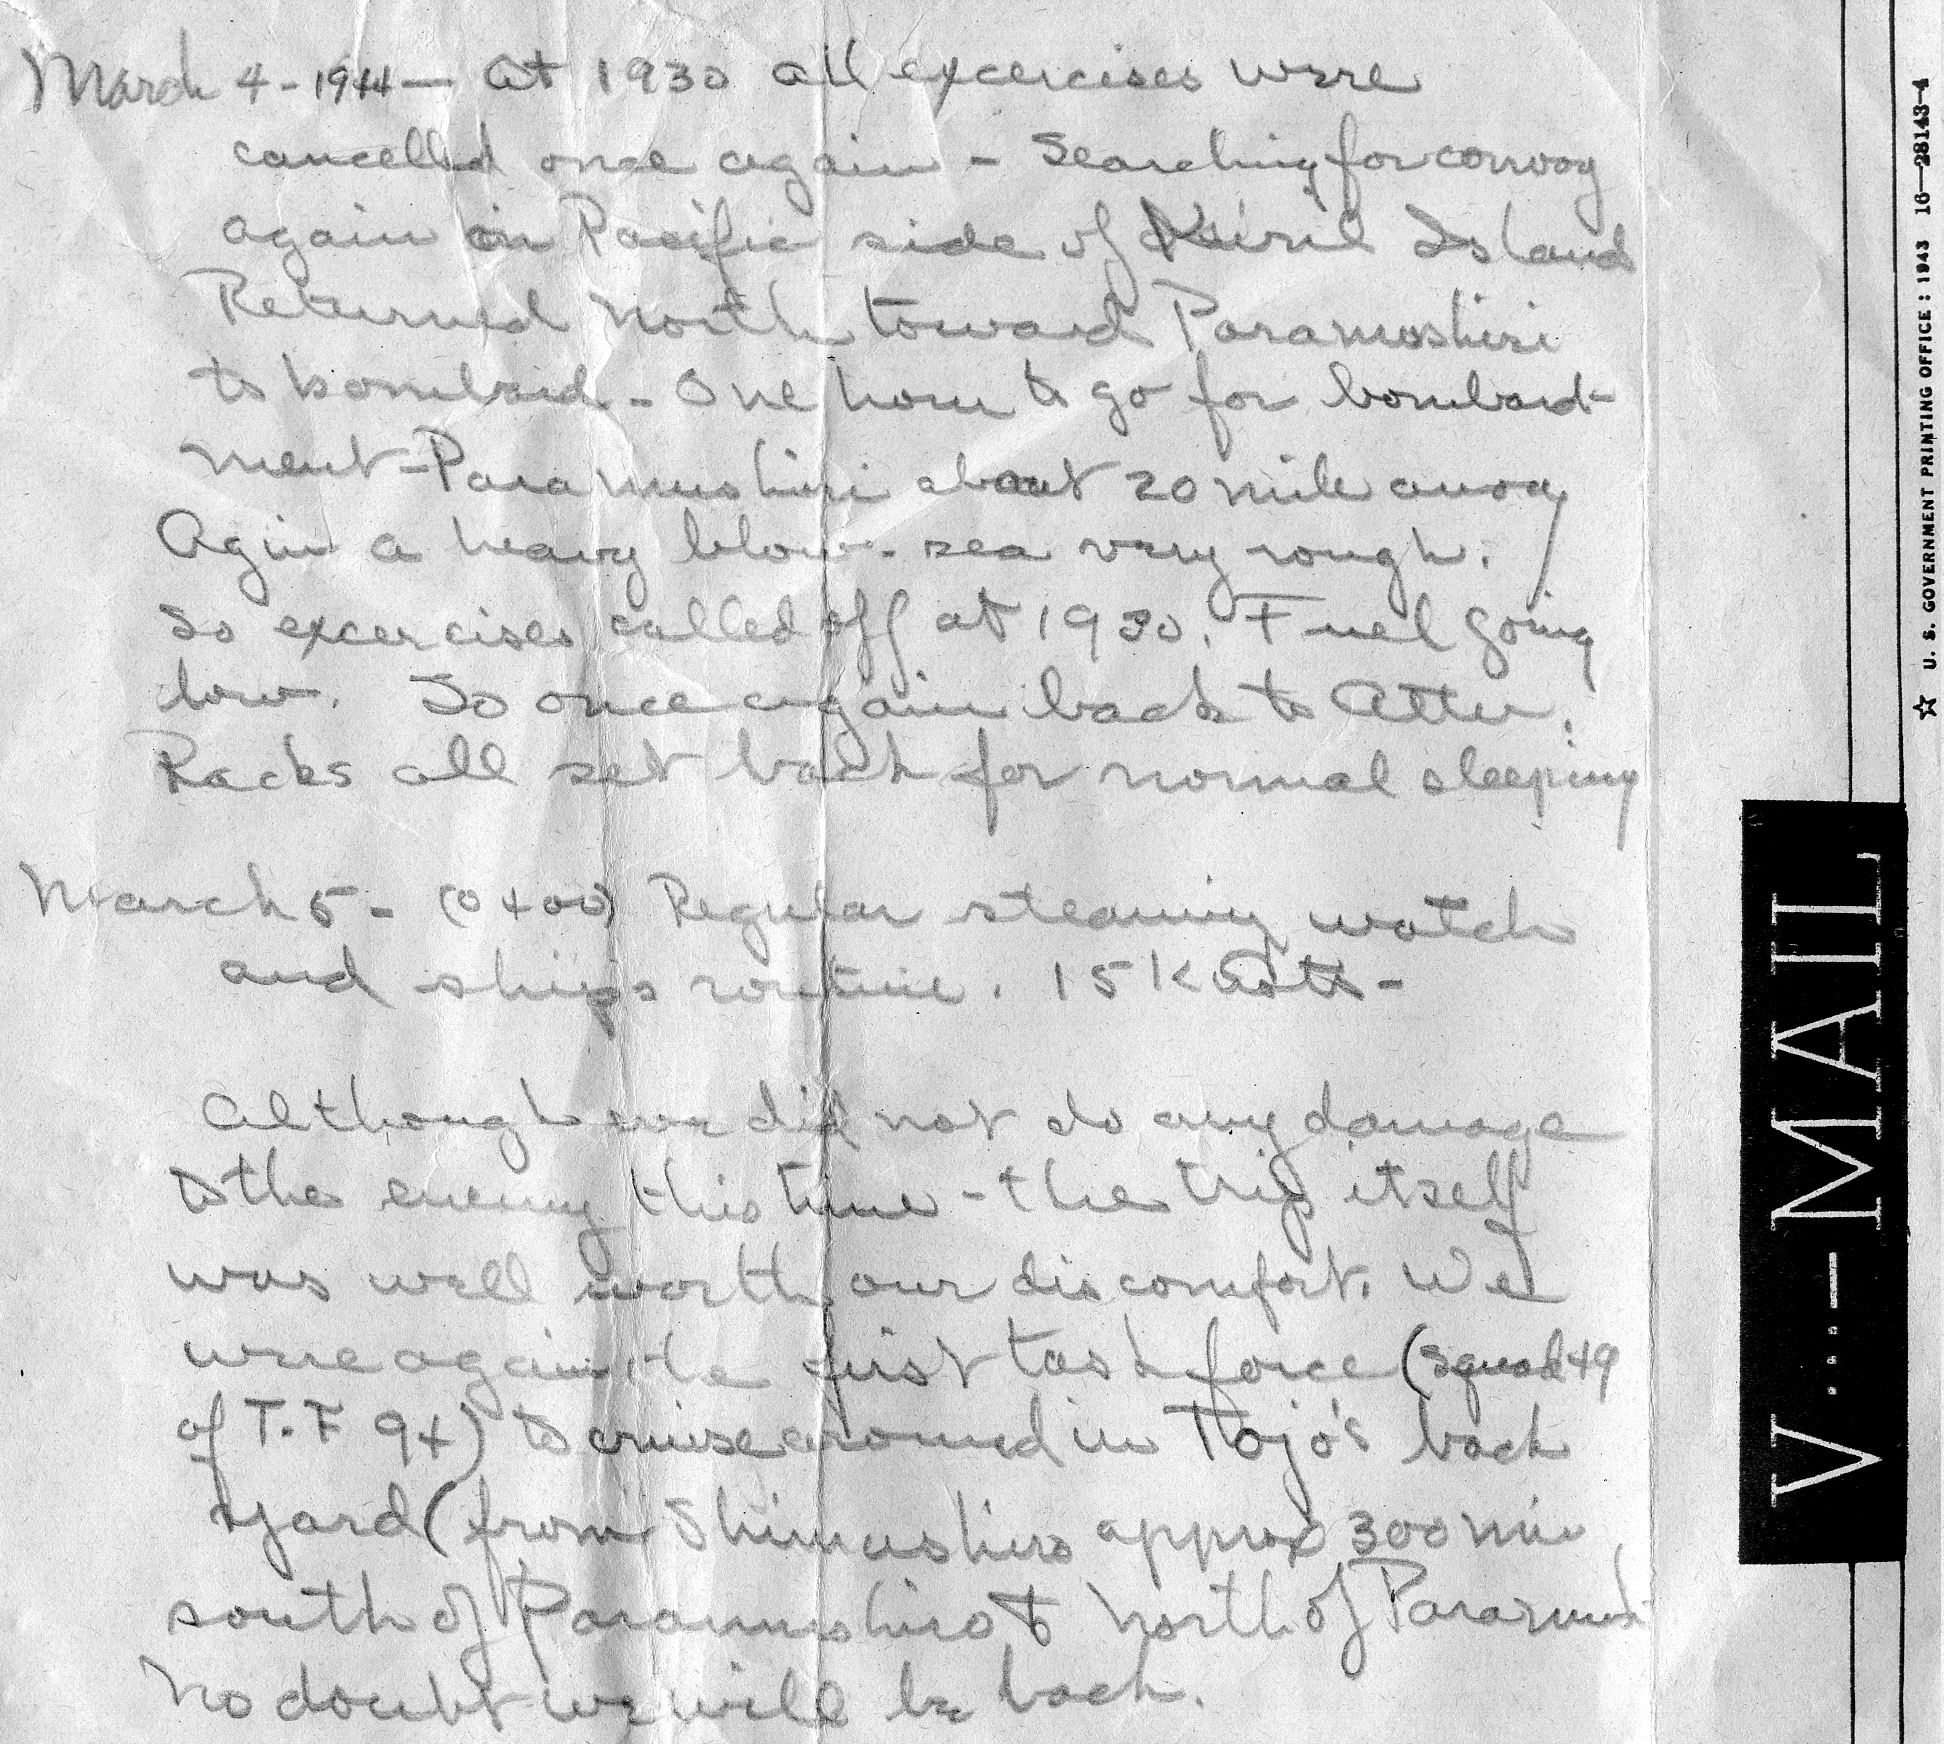 March 4 - 1944 — At 1930 all excercises were
cancelled once again - Searching for convoy
again on Pacific side of Kiril Island
Returned North toward Paramushiri
to bombard. - One hour to go for bombard-
ment - Paramushiri about 20 mile away
Agin a heavy blow - sea very rough.
So excercises called off at 1930. Fuel going
low. So once again back to Attu.
Racks all set back for normal sleeping
March 5 - (0400) Regular steaming watch
and ships routine. 15 K
Although we did not do any damage
to the enemy this time - the trip itself
was well worth our discomfort. We
were again the first task force (Squad 49
of T.F 94) to cruise around in Tojo's back
yard (from Shimushiro approx 300 mi
south of Paramushiro to North of Paramush
No doubt we will be back.
V···—MAIL
☆ U. S. GOVERNMENT PRINTING OFFICE : 1943 16—28143-4